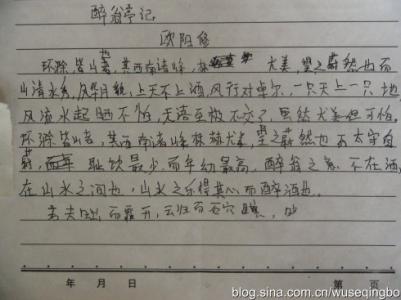 醉翁亭记
欧阳修
环滁皆山也,其西南诸峰,林 尤美,望之蔚然也而
山清水秀,风华月貌,上天不上酒风行对卑尔,一只天上一只地
风流水起晒不怕,无语至极不交了,虽结尤美但可怕。
环滁皆山也,其西南诸峰林赫尤美,望之蔚然也 太守自
蔚, 耻饮最少,而年幼最高,醉翁之意不在酒
在山水之间也,山水之乐得其心而醉酒也。
若夫日出而霏开,云归而石穴
年 月 日 第 页
blog.sina.com.cn/wuseqingbo